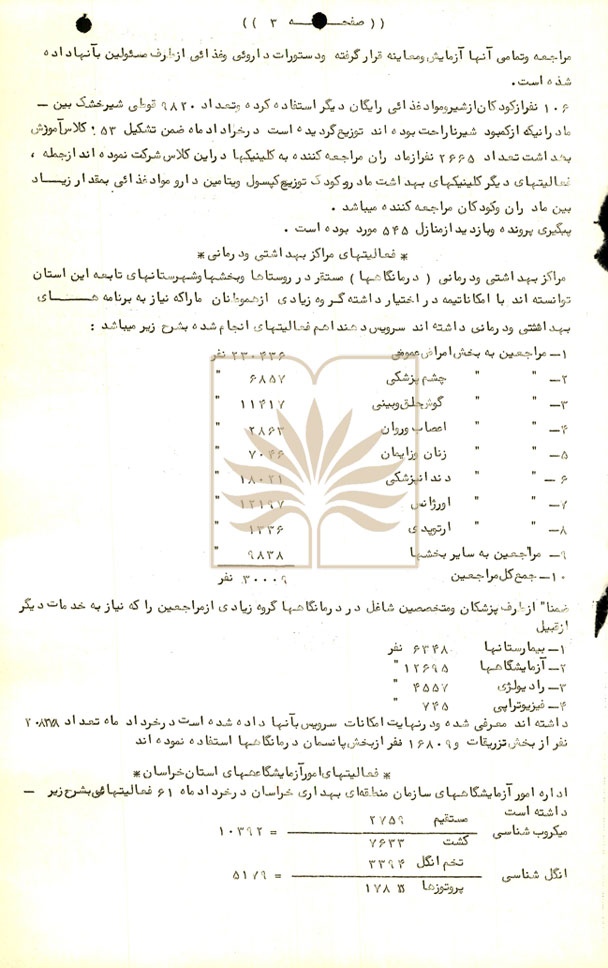 (( صفحـــه ۳ ))
مراجعه وتمامی آنها آزمایش ومعاینه قرار گرفته ودستورات داروئی وغذائی ازطرف مسئولین بآنها داده
شده است .
۱۰۶ نفر ازکودکان ازشیر ومواد غذائی رایگان دیگر استفاده کرده وتعداد ۹۸۲۰ قوطی شیرخشک بین —
مادرانیکه ازکمبود شیرناراحت بوده اند توزیع گردیده است درخرداد ماه ضمن تشکیل ۵۳ کلاس آموزش
بهداشت تعداد ۲۶۶۵ نفر ازماد ران مراجعه کننده به کلینیکها دراین کلاس شرکت نموده اند ازجمله ،
فعالیتهای دیگر کلینیکهای بهداشت مادر وکودک توزیع کپسول ویتامین دارو مواد غذائی بمقدار زیــاد
بین ماد ران وکودکان مراجعه کننده میباشد .
پیگیری پرونده وبازدید ازمنازل ۵۴۵ مورد بوده است .
* فعالیتهای مراکز بهداشتی ودرمانی *
مراکز بهداشتی ودرمانی ( درمانگاهها ) مستقر در روستاها وبخشها وشهرستانهای تابعه این استان
توانسته اند با امکاناتیمه در اختیار داشته گروه زیادی ازهموطنان ماراکه نیاز به برنامه هـــای
بهداشتی ودرمانی داشته اند سرویس دهند اهم فعالیتهای انجام شده بشرح زیر میباشد :
۱— مراجعین به بخش امراض عمومی ۲۳۰۴۳۶ نفر
۲— " " چشم پزشکی ۶۸۵۷ "
۳— " " گوش حلق وبینی ۱۱۴۱۷ "
۴— " " اعصاب وروان ۲۸۶۳ "
۵— " " زنان وزایمان ۷۰۴۶ "
۶— " " دندانپزشکی ۱۸۰۲۱ "
۷— " " اورژانس ۱۲۱۹۷ "
۸— " " ارتوپدی ۱۳۳۶ "
۹— مراجعین به سایر بخشها ۹۸۳۸ "
۱۰— جمع کل مراجعین ۳۰۰۰۹ نفر
ضمنا" ازطرف پزشکان ومتخصصین شاغل در درمانگاهها گروه زیادی ازمراجعین را که نیاز به خدمات دیگر
ازقبیل
۱— بیمارستانها ۶۳۴۸ نفر
۲— آزمایشگاهها ۱۲۶۹۵ "
۳— رادیولژی ۴۵۵۷ "
۴— فیزیوتراپی ۷۴۵ "
داشته اند معرفی شده ودرنهایت امکانات سرویس بآنها داده شده است درخرداد ماه تعداد
نفر از بخش تزریقات و ۱۶۸۰۹ نفر ازبخش پانسمان درمانگاهها استفاده نموده اند
* فعالیتهای امور آزمایشگاههای استان خراسان *
اداره امور آزمایشگاههای سازمان منطقه‌ای بهداری خراسان درخرداد ماه ۶۱ فعالیتهائی بشرح زیر —
داشته است
مستقیم ۲۷۵۹
میکروب شناسی = ۱۰۳۹۲
کشت ۷۶۳۳
تخم انگل ۳۳۹۴
انگل شناسی = ۵۱۷۹
پروتوزها ۱۷۸